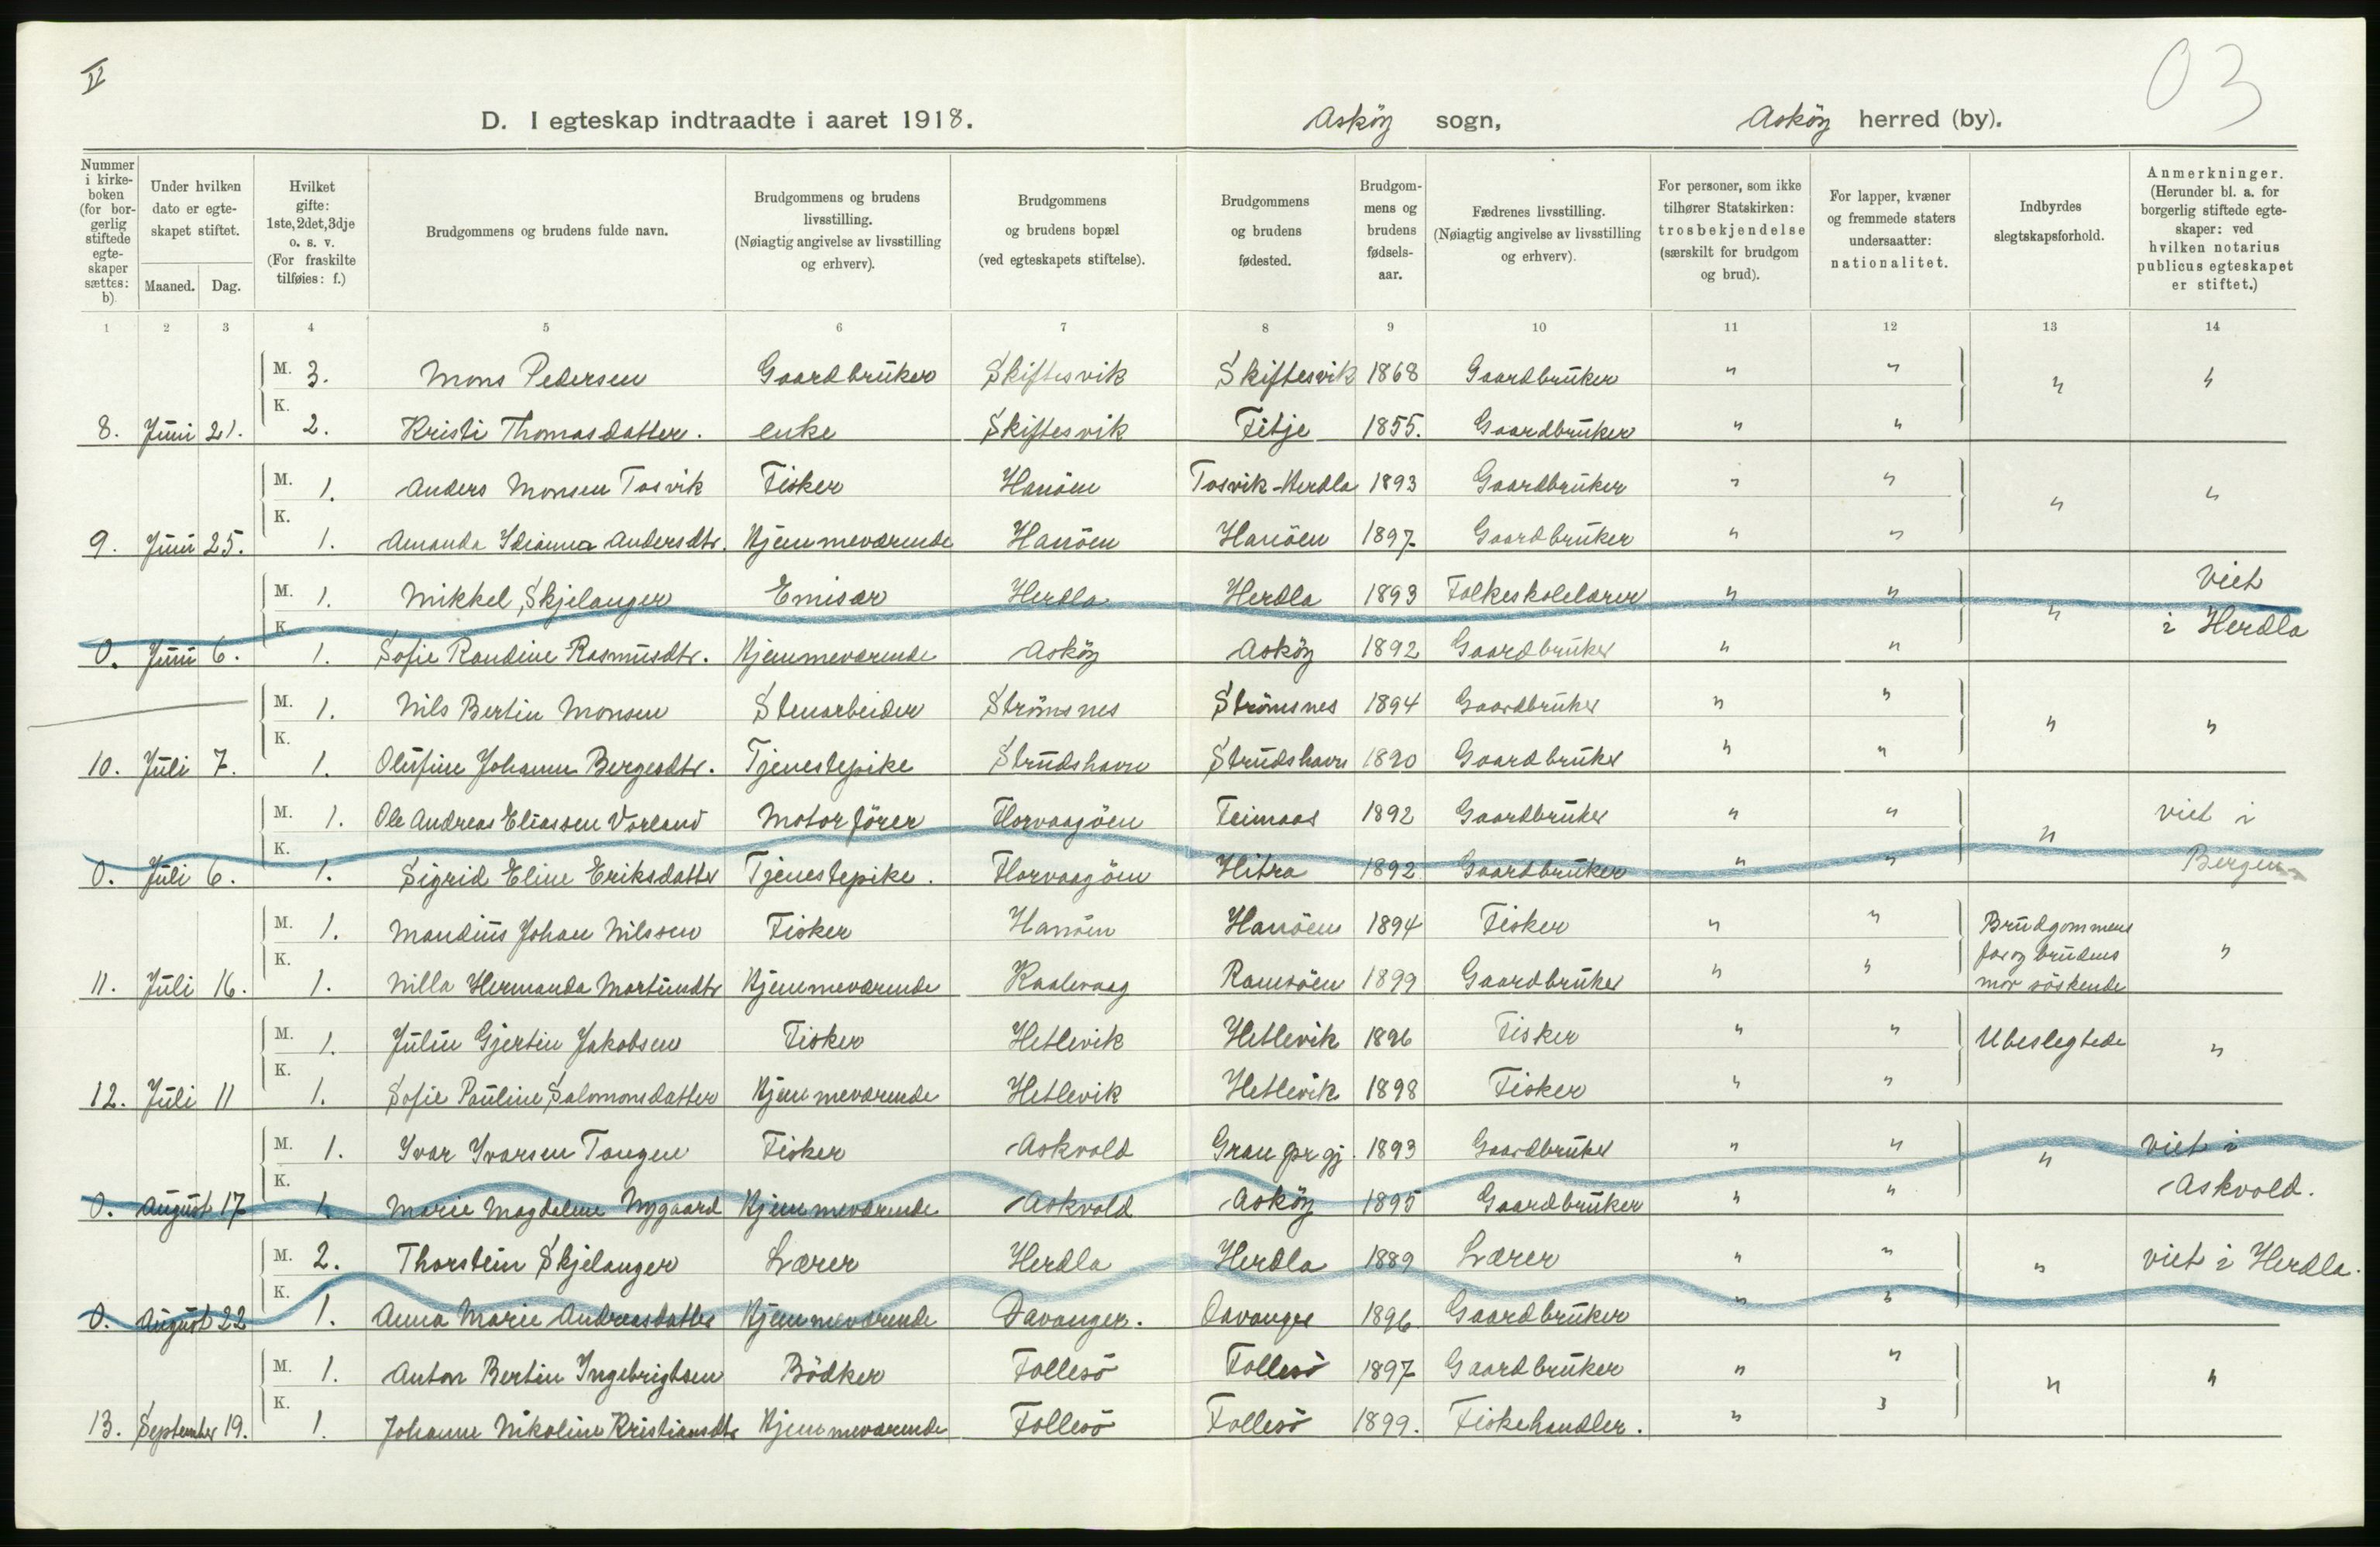 II
03
D. I egteskap indtraadte i aaret 1918. Asköy sogn, Asköy herred (by).
Nummer i kirkeboken (for borgerlig stiftede egteskaper sættes: b) | Under hvilken dato er egteskapet stiftet. Maaned. Dag. | Hvilket gifte: 1ste, 2det, 3dje o. s. v. (For fraskilte tilføies: f.) | Brudgommens og brudens fulde navn. | Brudgommens og brudens livsstilling. (Nøiagtig angivelse av livsstilling og erhverv). | Brudgommens og brudens bopæl (ved egteskapets stiftelse). | Brudgommens og brudens fødested. | Brudgommens og brudens fødselsaar. | Fædrenes livsstilling. (Nøiagtig angivelse av livsstilling og erhverv). | For personer, som ikke tilhører Statskirken: trosbekjendelse (særskilt for brudgom og brud). | For lapper, kvæner og fremmede staters undersaatter: nationalitet. | Indbyrdes slegtskapsforhold. | Anmerkninger. (Herunder bl. a. for borgerlig stiftede egteskaper: ved hvilken notarius publicus egteskapet er stiftet.)
1 2 3 4 5 6 7 8 9 10 11 12 13 14
M. 3. Mons Pedersen Gaardbruker Skiftesvik Skiftesvik 1868 Gaardbruker " " " "
8. Juni 21. K. 2. Kristi Thomasdatter. enke Skiftesvik Fitje 1855. Gaardbruker " "
M. 1. Anders Monsen Tosvik Fisker Hanöen Tosvik-Herdla 1893 Gaardbruker " " " "
9. Juni 25. K. 1. Amanda Andersdtr. Hjemmeværende Hanöen Hanöen 1897 Gaardbruker " "
M. 1. Mikkel Skjelanger Emisær Herdla Herdla 1893 Folkeskolelærer " " " Viet
0. Juni 6. K. 1. Sofie Randine Rasmusdtr. Hjemmeværende Asköy Asköy 1892 Gaardbruker " " i Herdla
M. 1. Nils Bertin Monsen Stenarbeider Strömsnes Strömsnes 1894 Gaardbruker " " " "
10. Juli 7. K. 1. Olufine Johanne Bergesdtr. Tjenestepike Strudshavn Strudshavn 1890 Gaardbruker " "
M. 1. Ole Andreas Eliassen Vorland Motorförer Florvaagöen Feimaas 1892 Gaardbruker " " " viet i
0. Juli 6. K. 1. Sigrid Eline Eriksdatter Tjenestepike. Florvaagöen Hitra 1892 Gaardbruker " " Bergen
M. 1. Mandius Johan Nilssen Fisker Hanöen Hanöen 1894 Fisker " " Brudgommens
far og brudens "
11. Juli 16. K. 1. Nilla Hermanda Martindtr Hjemmeværende Kaalevaag Ramsöen 1899 Gaardbruker " " mor söskende
M. 1. Julin Gjertin Jakobsen Fisker Hetlevik Hetlevik 1896 Fisker " " Ubeslegtede "
12. Juli 11 K. 1. Sofie Pauline Salomonsdatter Hjemmeværende Hetlevik Hetlevik 1898 Fisker " "
M. 1. Ivar Ivarsen Tangen Fisker Askvold Gran pr gj. 1893 Gaardbruker " " " viet i
0. August 17 K. 1. Marie Magdalene Nygaard Hjemmeværende Askvold Asköy 1895 Gaardbruker " " Askvold.
M. 2. Thorstein Skjelanger Lærer Herdla Herdla 1889 Lærer " " " viet i Herdla.
0. August 22 K. 1. Anna Marie Andreasdatter Hjemmeværende Davanger. Davanger 1896. Gaardbruker " "
M. 1. Anton Bertin Ingebrigtsen Bödker Follesö Follesö 1897 Gaardbruker " " " "
13. September 19. K. 1. Johanne Nikoline Kristiansdtr Hjemmeværende Follesö Follesö 1899. Fiskehandler. " "